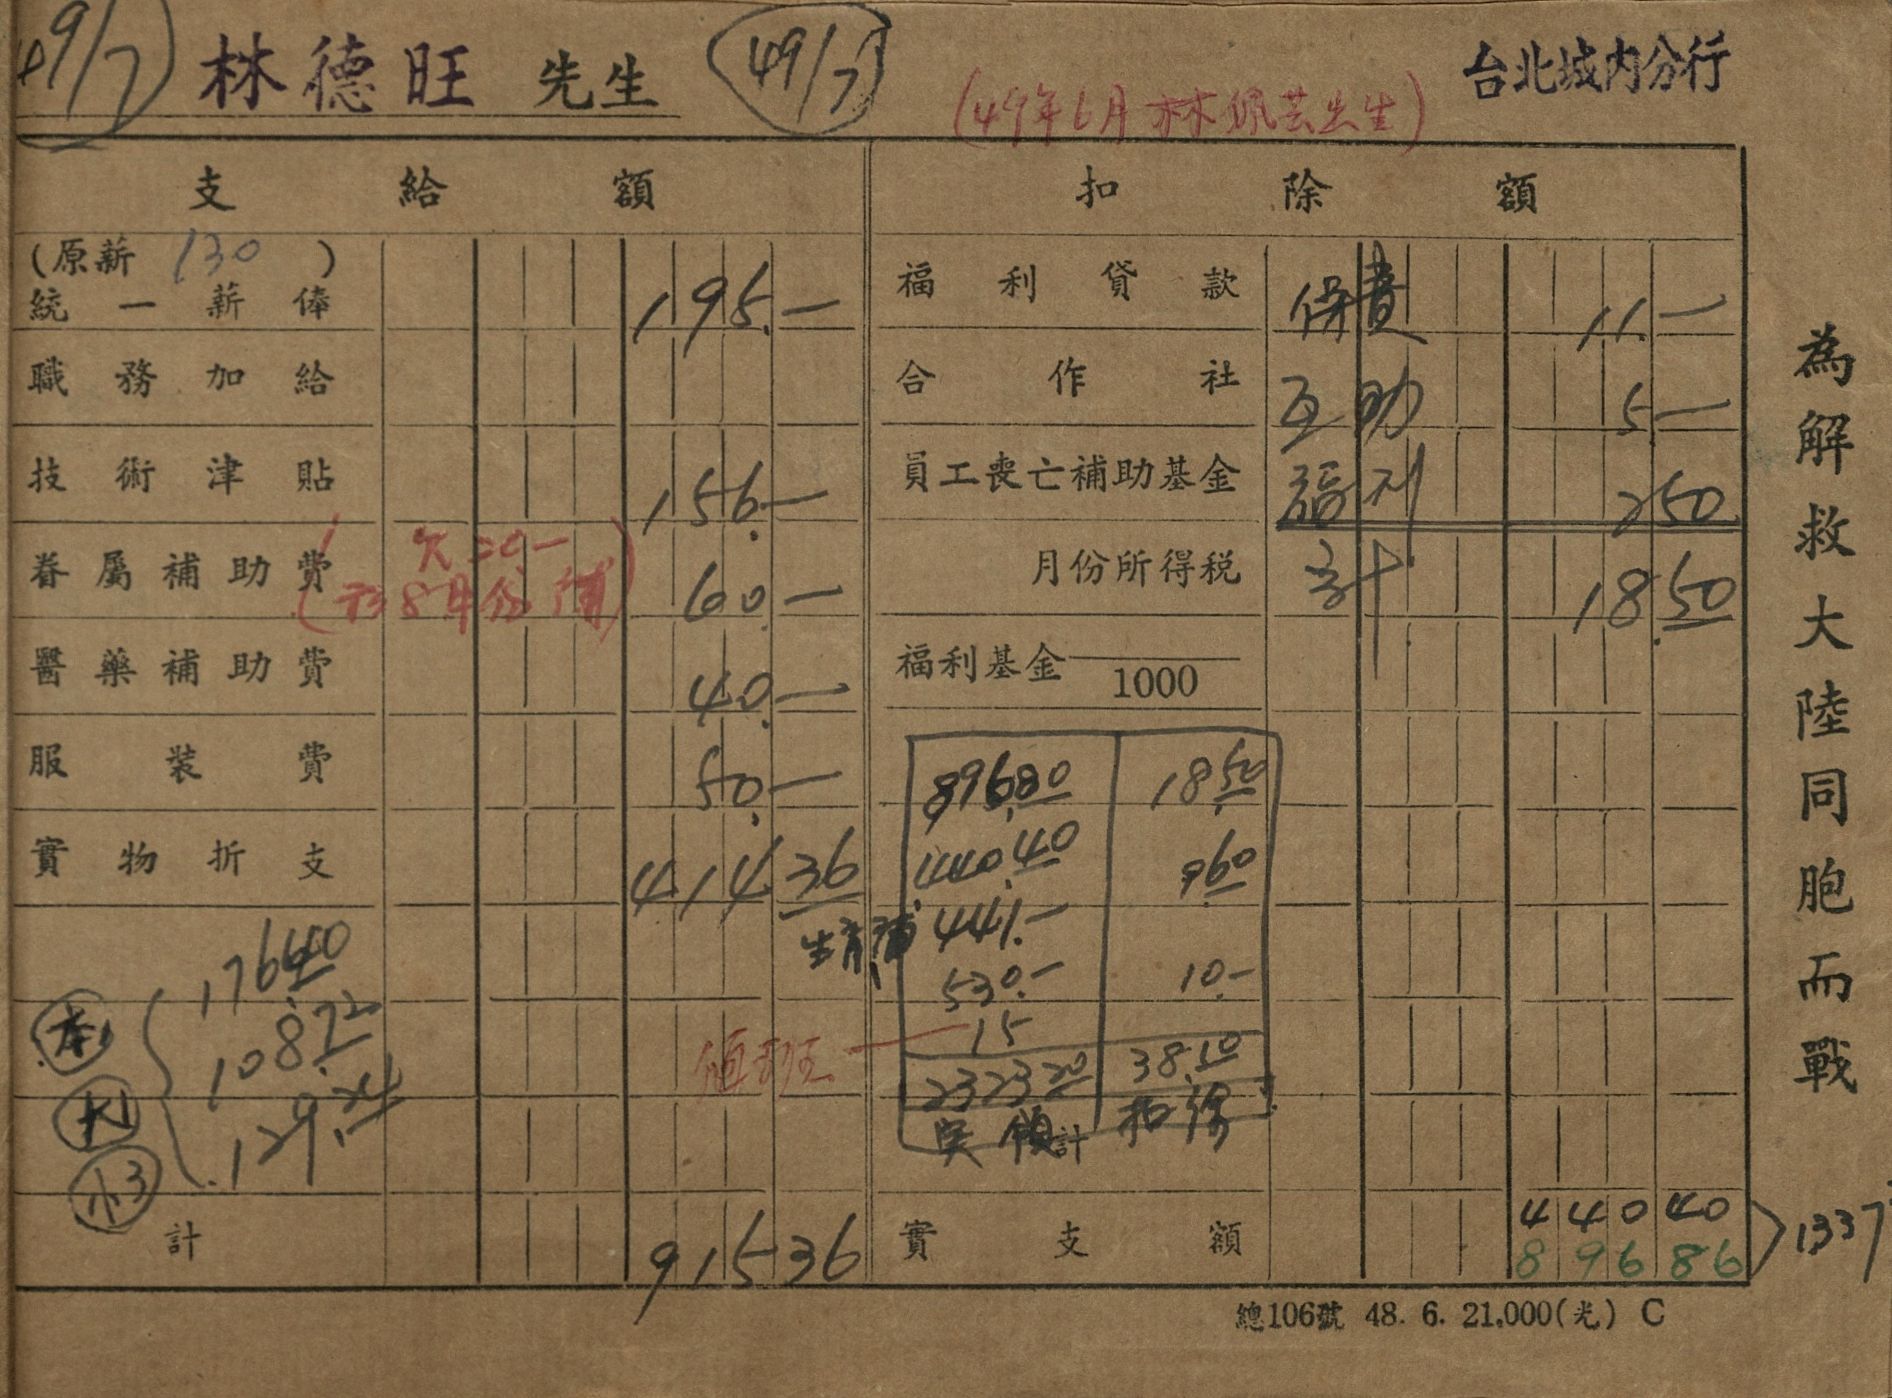 49/7 林德旺 先生 49/7 台北城內分行
(49年6月林佩芸出生)
支給額 扣除額
(原薪 130 )
統一薪俸 195.—
福利貸款 保費 11.—
職務加給
合作社 互助 5—
技術津貼 156.—
員工喪亡補助基金 福利 250
眷屬補助費 60.—
(欠20—
於8月份補)
月份所得稅 計 18.50
醫藥補助費 40.—
福利基金 /1000
服裝費 50.—
896.80 18.50
實物折支 414 36
440.40 9.60
生育補 441.—
530.— 10.—
值班 — 15
2323 20 38.10
實領計 扣除
本 176.40
大1 108.72
小3 129.24
計 915 36
實支額 440 40
896 86
1337
總106號 48. 6. 21,000(光) C
為解救大陸同胞而戰